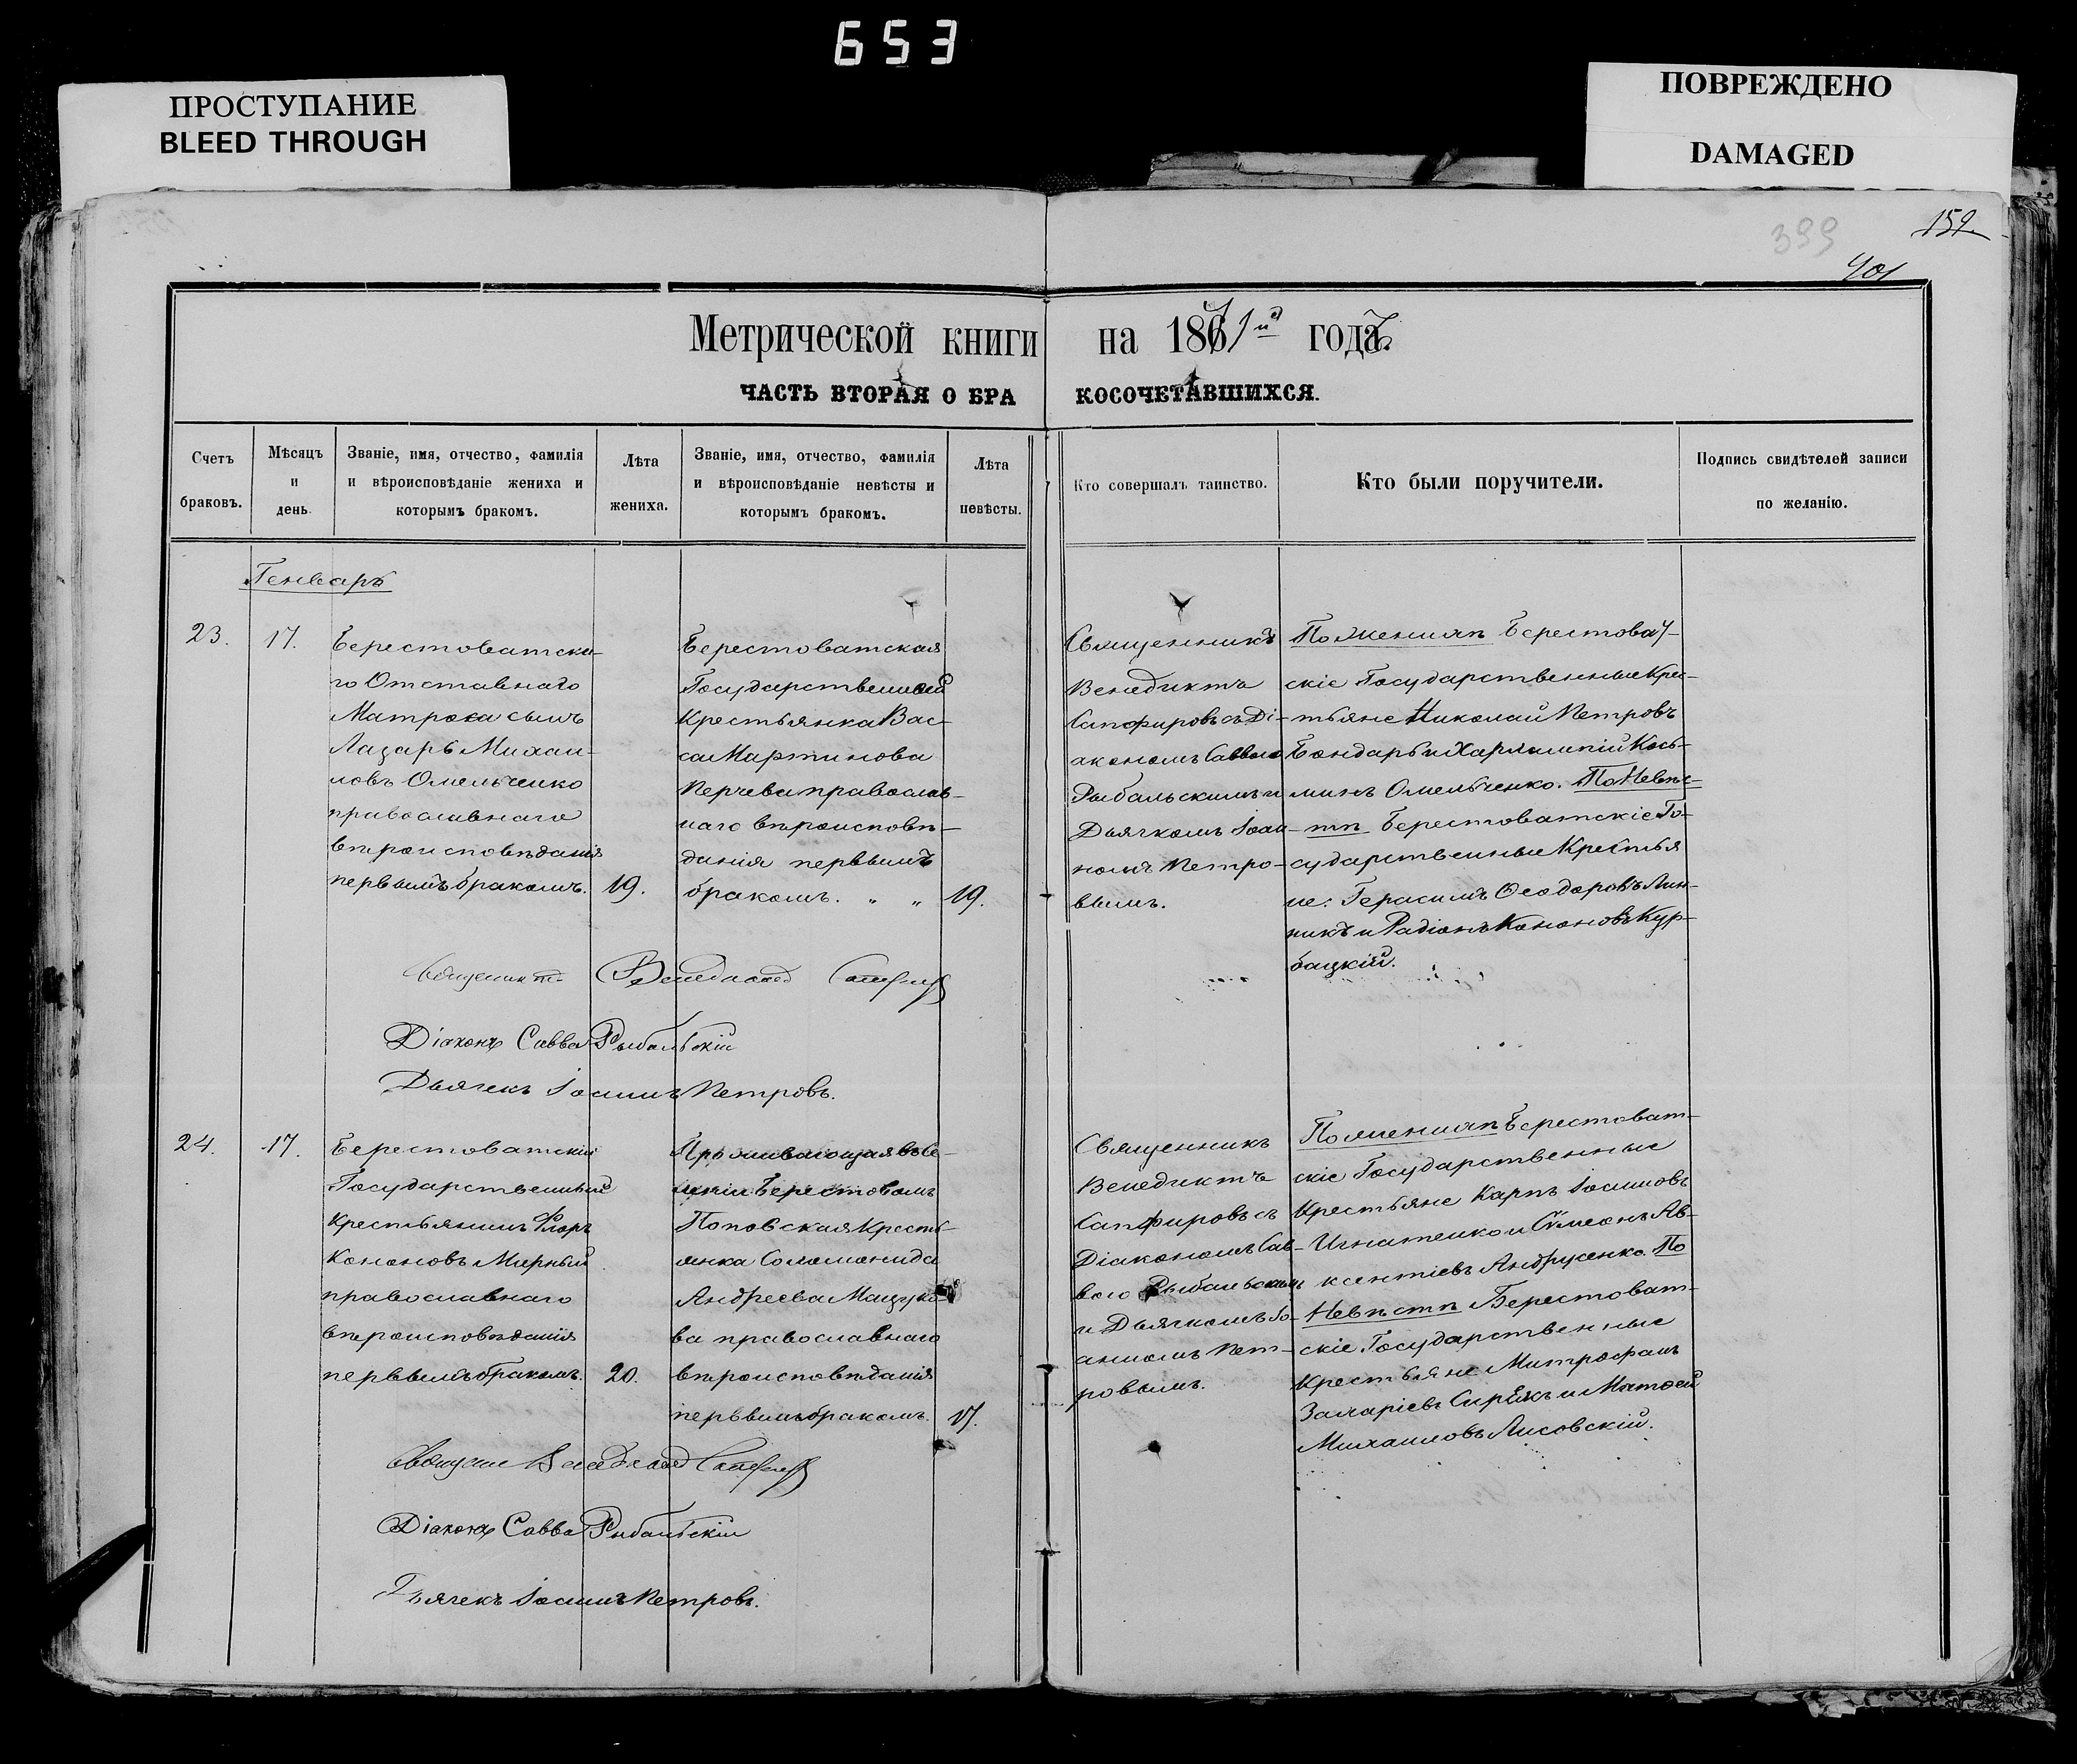 653
ПРОСТУПАНИЕ
BLEED THROUGH
ПОВРЕЖДЕНО
DAMAGED
399
159.
401
Метрической книги на 1871й годъ.
ЧАСТЬ ВТОРАЯ О БРАКОСОЧЕТАВШИХСЯ.
Счетъ браковъ.
Мѣсяцъ и день.
Званіе, имя, отчество, фамилія
и вѣроисповѣданіе жениха и
которымъ бракомъ.
Лѣта жениха.
Званіе, имя, отчество, фамилія
и вѣроисповѣданіе невѣсты и
которымъ бракомъ.
Лѣта невѣсты.
Кто совершалъ таинство.
Кто были поручители.
Подпись свидѣтелей записи
по желанію.
Генварь
23.
17.
Берестоватска-
го Отставнаго
Матроса сынъ
Лазарь Михаи-
ловъ Омельченко
православнаго
вѣроисповѣданія
первымъ бракомъ.
19.
Берестоватская
Государственная
Крестьянка Вас-
са Мартинова
Перчева православ-
наго вѣроисповѣ-
данія первымъ
бракомъ. „ „
19.
Священникъ
Венедиктъ
Сапфировъ съ Ді-
акономъ Саввою
Рыбальскимъ и
Дьячкомъ Іоан-
номъ Петро-
вымъ.
По Женихѣ Берестоват-
скіе Государственные Крес-
тьяне Николай Петровъ
Бондарь и Харлампій Кось-
минъ Омельченко. По Невѣс-
тѣ Берестоватскіе Го-
сударственные Крестья
не: Герасимъ Ѳеодоровъ Лин-
никъ и Радіонъ Кононовъ Кур-
бацкій.
Священникъ Венедиктъ Сапфировъ
Діаконъ Савва Рыбальскій
Дьячекъ Іоаннъ Петровъ.
24.
17.
Берестоватскій
Государственный
Крестьянинъ Флоръ
Кононовъ Мирный
православнаго
вѣроисповѣданія
первымъ бракомъ.
20.
Проживающая въ се-
леніи Берестовомъ
Поповская Кресть-
янка Соломонида
Андреева Мацуко-
ва православнаго
вѣроисповѣданія
первымъ бракомъ.
17.
Священникъ
Венедиктъ
Сапфировъ съ
Діакономъ Сав-
вою Рыбальскимъ
и Дьячкомъ Іо-
анномъ Пет-
ровымъ.
По женихѣ Берестоват-
скіе Государственные
Крестьяне Карпъ Іоанновъ
Игнатенко и Сѵмеонъ Ав-
ксентіевъ Андрусенко. По
Невѣстѣ Берестоват-
скіе Государственные
Крестьяне Митрофанъ
Захаріевъ Сирыкъ и Матѳей
Михаиловъ Лисовскій.
Священник Венедиктъ Сапфировъ
Діаконъ Савва Рыбальскій
Дьячекъ Іоаннъ Петровъ.